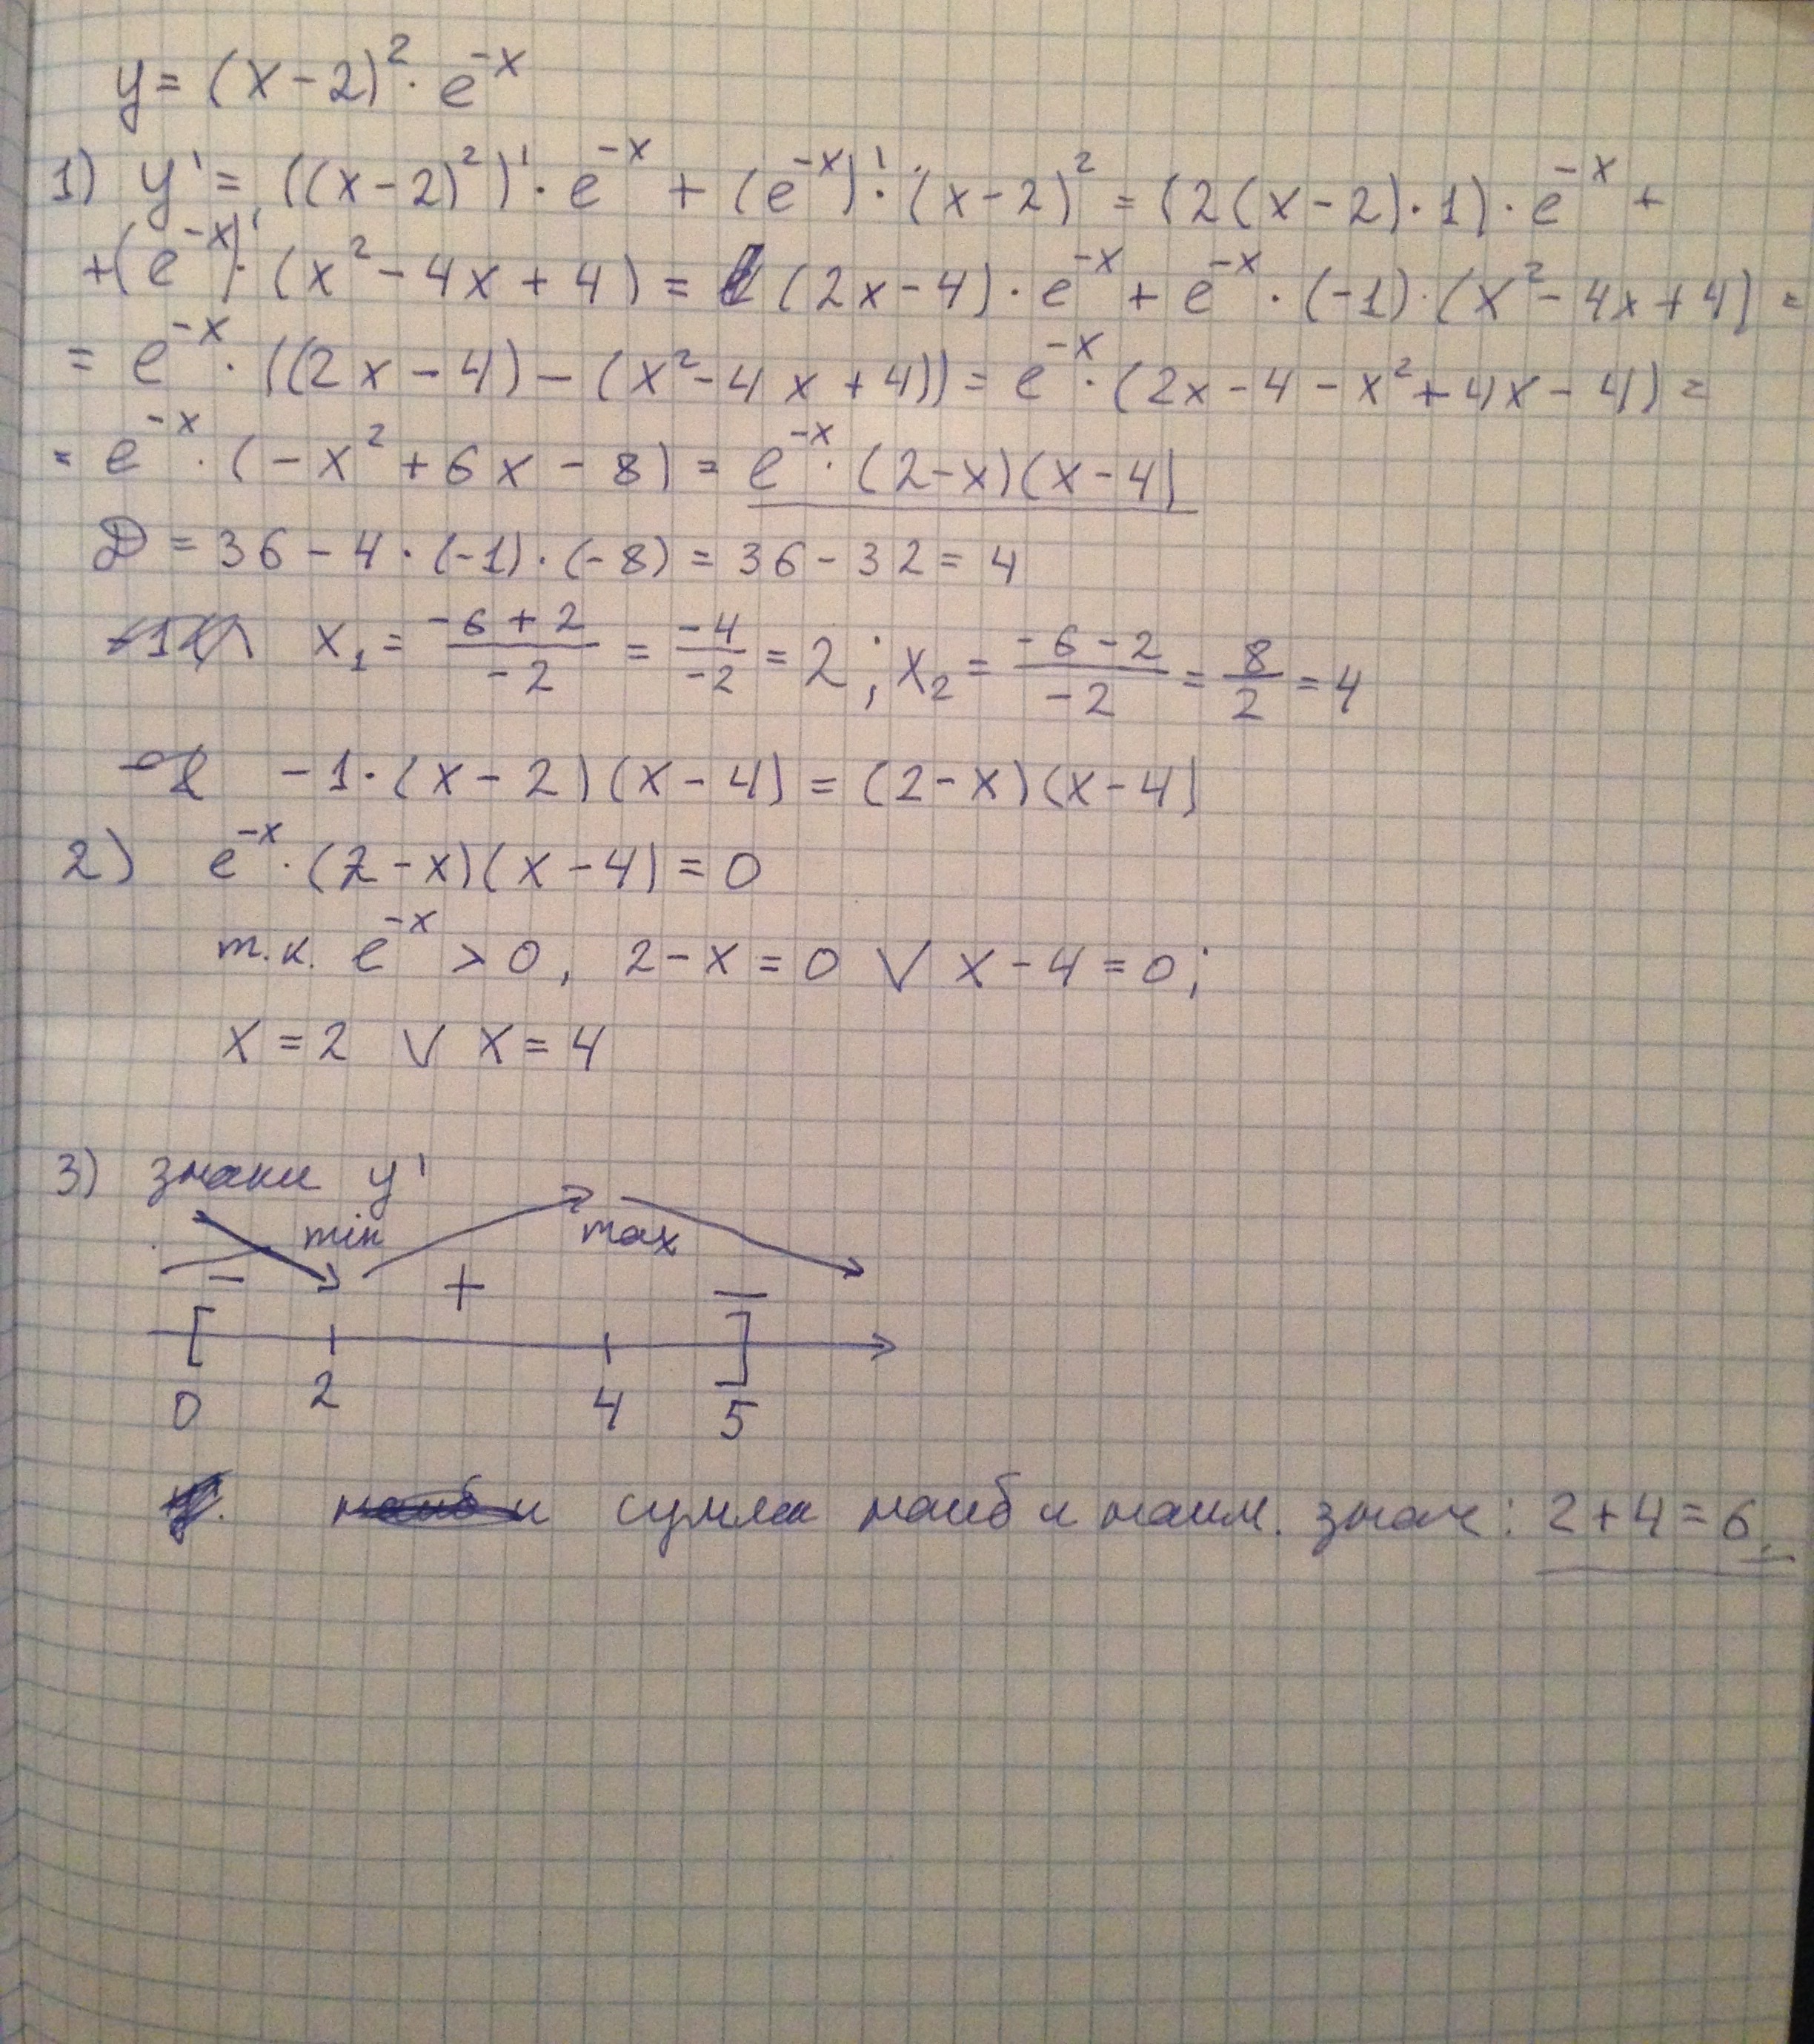 y = (x-2)² · e⁻ˣ
1) y' = ((x-2)²)' · e⁻ˣ + (e⁻ˣ)' · (x-2)² = (2(x-2)·1) · e⁻ˣ +
+(e⁻ˣ)' · (x² - 4x + 4) = (2x-4) · e⁻ˣ + e⁻ˣ · (-1) · (x² - 4x + 4) =
= e⁻ˣ · ((2x-4) - (x² - 4x + 4)) = e⁻ˣ · (2x - 4 - x² + 4x - 4) =
= e⁻ˣ · (-x² + 6x - 8) = e⁻ˣ · (2-x)(x-4)
D = 36 - 4 · (-1) · (-8) = 36 - 32 = 4
x₁ = (-6+2)/(-2) = (-4)/(-2) = 2; x₂ = (-6-2)/(-2) = 8/2 = 4
-1 · (x-2)(x-4) = (2-x)(x-4)
2) e⁻ˣ · (2-x)(x-4) = 0
т.к. e⁻ˣ > 0, 2-x = 0 ∨ x-4 = 0;
x = 2 ∨ x = 4
3) знаки y'
min max
- + -
[ ]
0 2 4 5
сумма наиб и наим. знач: 2+4=6.